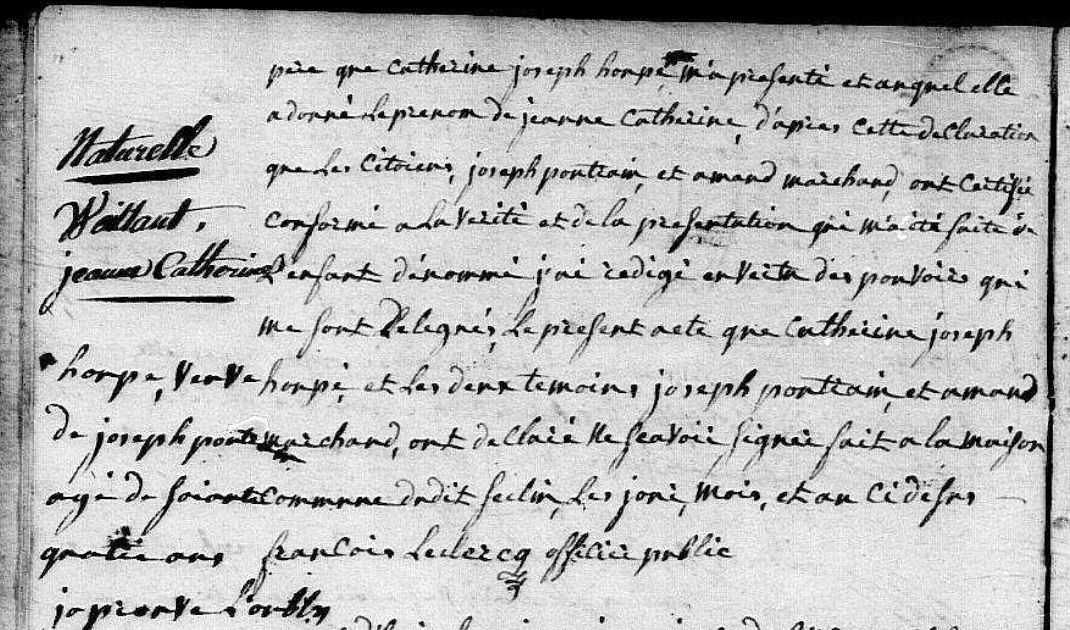 pere que catherine joseph horpé m'a presenté et auquel elle
a donné le prenom de jeanne catherine, d'apres cette declaration
que les citoiens, joseph pontrain, et amand marchand, ont certifié
conforme a la verité et de la presentation qui m'a été faite de
l'enfant dénommé j'ai redigé en vertu des pouvoirs qui
me sont delegués, le present acte que catherine joseph
horpé, et les deux temoins joseph pontrain, et amand
marchand, ont declaré ne scavoir signer fait a la maison
commune dudit seclin, les jour, mois, et an ci desus
francois Leclercq officier public
Naturelle
Vaillant,
jeanne Catherine
horpe, veuve
de joseph
agé de soiante
quatre ans
japrouve